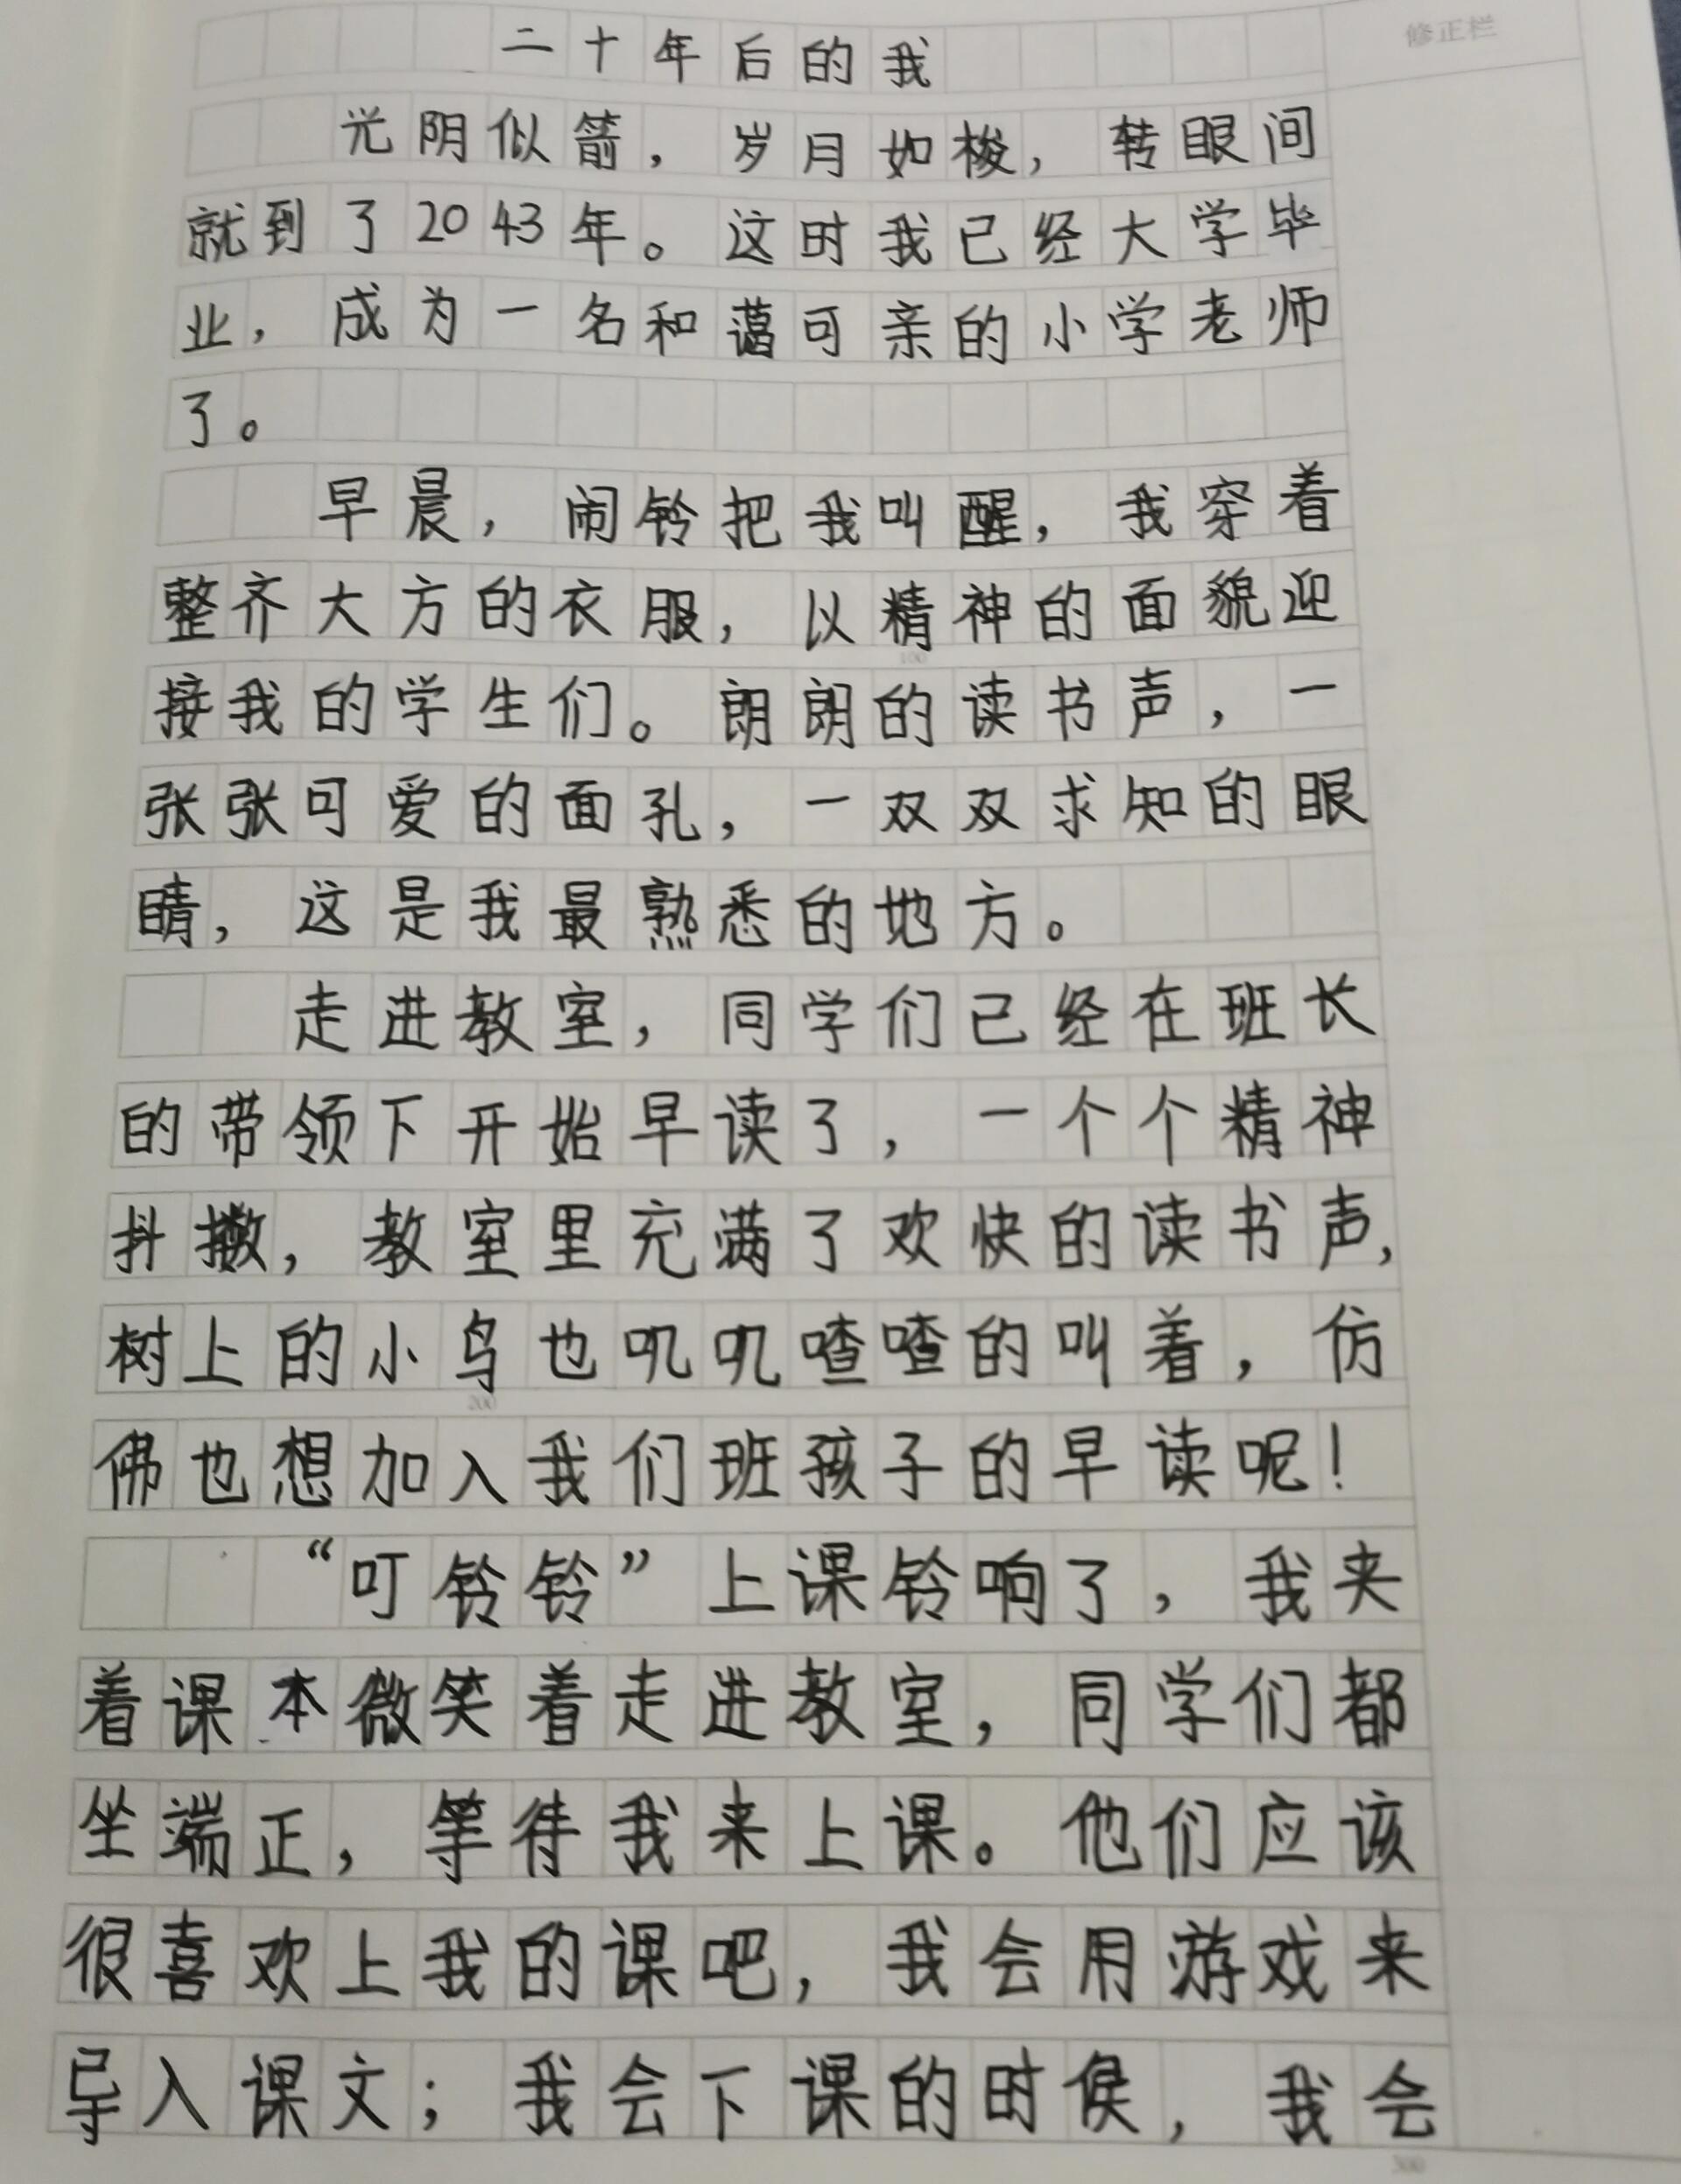 修正栏
二十年后的我
光阴似箭，岁月如梭，转眼间
就到了2043年。这时我已经大学毕
业，成为一名和蔼可亲的小学老师
了。
早晨，闹铃把我叫醒，我穿着
整齐大方的衣服，以精神的面貌迎
100
接我的学生们。朗朗的读书声，一
张张可爱的面孔，一双双求知的眼
睛，这是我最熟悉的地方。
走进教室，同学们已经在班长
的带领下开始早读了，一个个精神
抖擞，教室里充满了欢快的读书声，
树上的小鸟也叽叽喳喳的叫着，仿
200
佛也想加入我们班孩子的早读呢！
“叮铃铃”上课铃响了，我夹
着课本微笑着走进教室，同学们都
坐端正，等待我来上课。他们应该
很喜欢上我的课吧，我会用游戏来
导入课文；我会下课的时候，我会
300